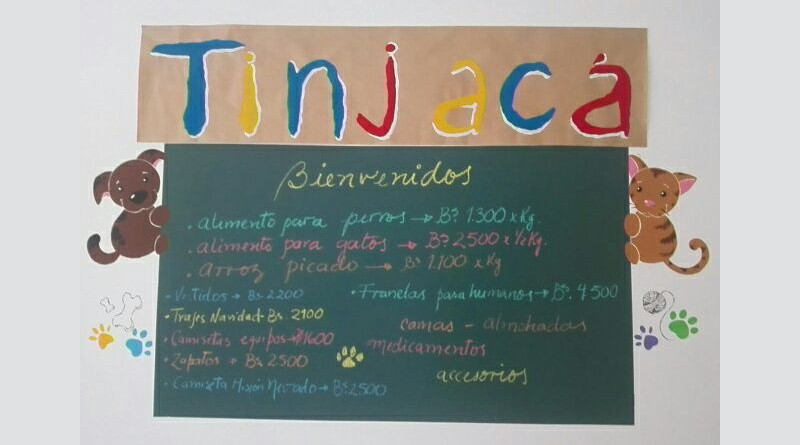 Tinjacá
Bienvenidos
. alimento para perros → Bs. 1.300 x Kg.
. alimento para gatos → Bs. 2.500 x 1/2 Kg.
. arroz picado → Bs. 1.100 x Kg
• Vestidos → Bs. 2200
• Trajes Navidad - Bs. 2900
• Camisetas equipos → Bs. 1600
• Zapatos → Bs. 2500
• Camiseta Misión Nevado → Bs. 2500
• Franelas para humanos → Bs. 4500
camas - almohadas
medicamentos
accesorios